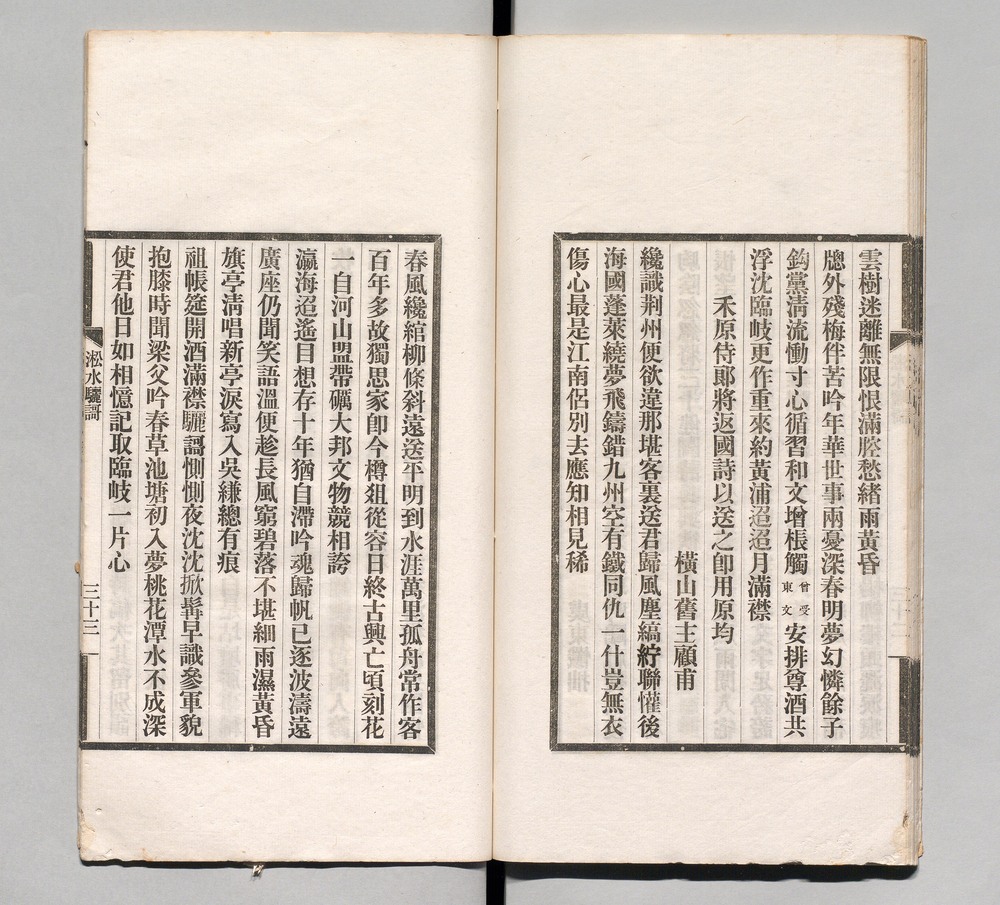 雲樹迷離無限恨滿腔愁緒雨黃昏
牕外殘梅伴苦吟年華世事兩憂深春明夢幻憐餘子
鈎黨清流慟寸心循習和文增棖觸曾受東文安排尊酒共
浮沈臨岐更作重來約黃浦迢迢月滿襟
禾原侍郞將返國詩以送之卽用原均
橫山舊主顧甫
纔識荆州便欲違那堪客裏送君歸風塵縞紵聯懽後
海國蓬萊繞夢飛鑄錯九州空有鐵同仇一什豈無衣
傷心最是江南侶別去應知相見稀
春風纔綰柳條斜遠送平明到水涯萬里孤舟常作客
百年多故獨思家卽今樽俎從容日終古興亡頃刻花
一自河山盟帶礪大邦文物競相誇
瀛海迢遙目想存十年猶自滯吟魂歸帆已逐波濤遠
廣座仍聞笑語溫便趁長風窮碧落不堪細雨濕黃昏
旗亭淸唱新亭淚寫入吳縑總有痕
祖帳筵開酒滿襟驪謌惻惻夜沈沈掀髯早識參軍貌
抱膝時聞梁父吟春草池塘初入夢桃花潭水不成深
使君他日如相憶記取臨岐一片心
淞水驪謌
三十三